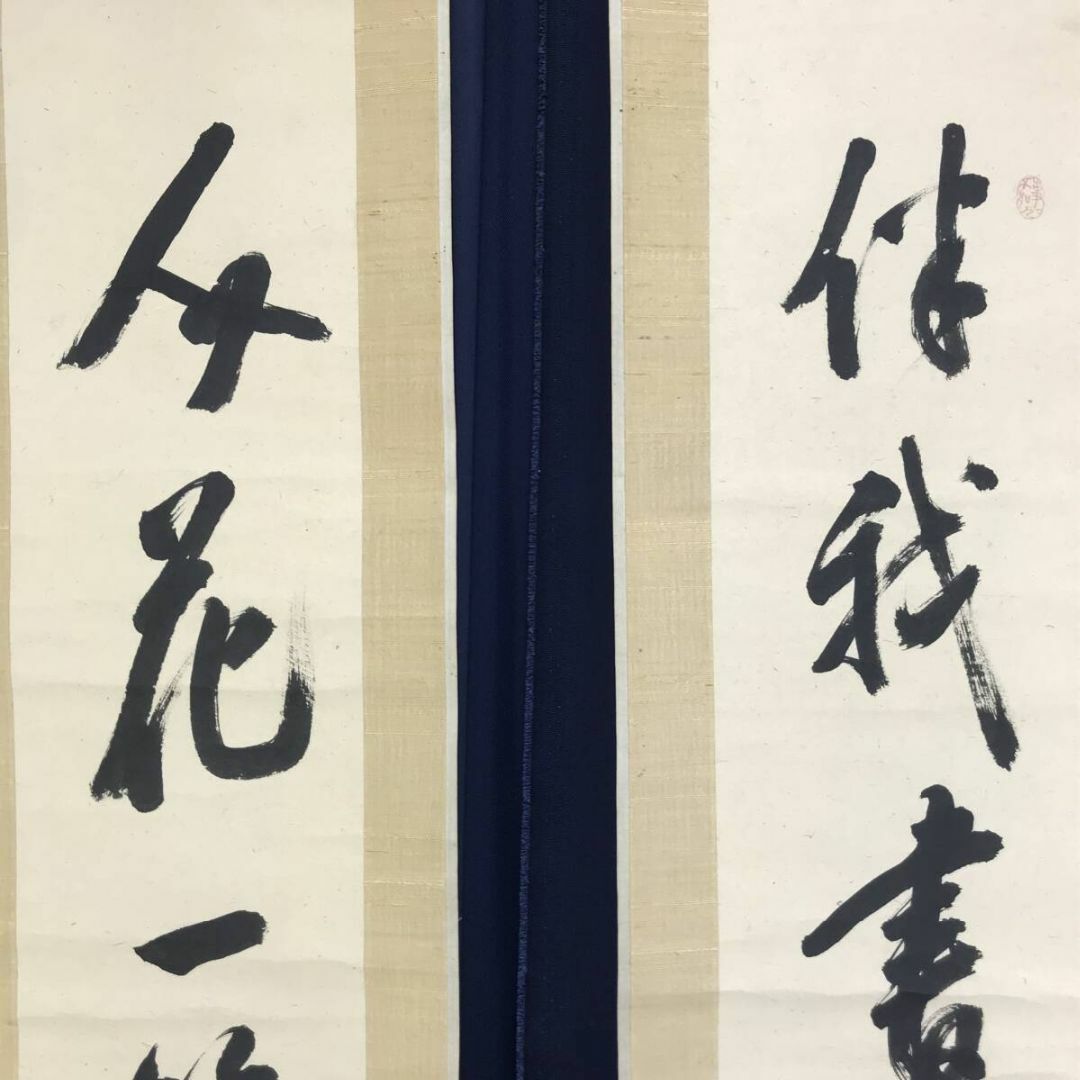 伴我書
分花一